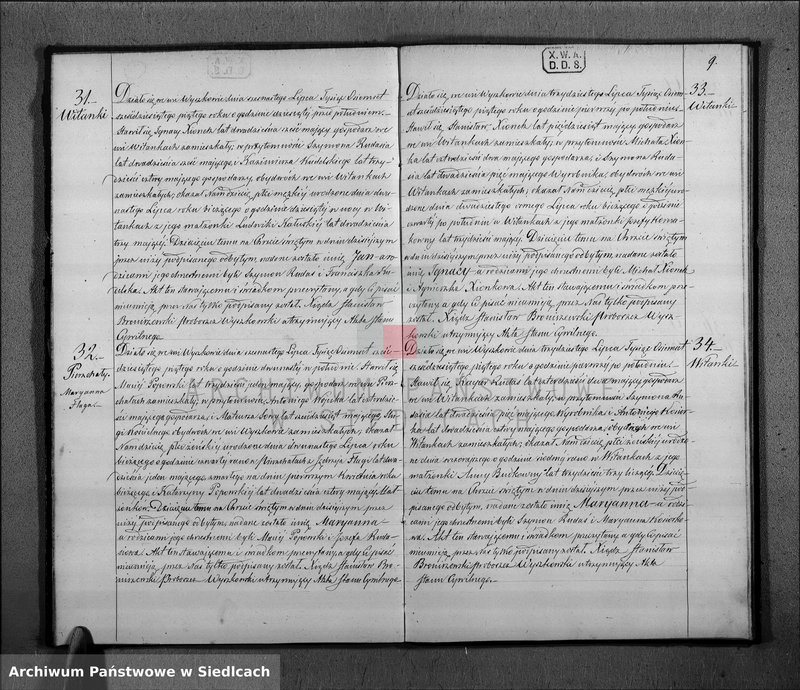 X. W. A.
D. D. 8.
9.
31.
Witanki
Działo się we wsi Wyszkowie dnia szesnastego Lipca Tysiąc Ośmset
sześćdziesiątego piątego roku o godzinie dziesiątej przed południem.
Stawił się Ignacy Xionek lat dwadzieścia sześć mający gospodarz we
wsi Witankach zamieszkały; w przytomności Szymona Rudasia
lat dwadzieścia sześć mającego i Kazimierza Kudelskiego lat trzy-
dzieści cztery mającego gospodarzy, obydwóch we wsi Witankach
zamieszkałych; okazał Nam dziecię płci męzkiej urodzone dnia dwu-
nastego Lipca roku bieżącego o godzinie dziesiątej w nocy w Wi-
tankach z jego małżonki Ludwiki lat dwadzieścia
trzy mającej. Dziecięciu temu na Chrzcie świętym w dniu dzisiejszym
przez niżej podpisanego odbytym, nadane zostało imię Jan - a ro-
dzicami jego chrzestnemi byli Szymon Rudaś i Franciszka
Akt ten stawającemu i świadkom przeczytany, a gdy Ci pisać
nieumieją przez Nas tylko podpisany został. Xiądz Stanisław
Broniszewski Proboszcz Wyszkowski utrzymujący Akta Stanu
Cywilnego.
32.
Maryanna
Działo się we wsi Wyszkowie dnia szesnastego Lipca Tysiąc Ośmset sześć-
dziesiątego piątego roku o godzinie dwunastej w południe. Stawił się
Maciej Popowski lat trzydzieści jeden mający, gospodarz we wsi
zamieszkały, w przytomności Antoniego Wójcika lat
mającego gospodarza, i Mateusza lat mającego Słu-
gi Kościelnego obydwóch we wsi Wyszkowie zamieszkałych; okazał
Nam dziecię płci żeńskiej urodzone dnia dwunastego Lipca roku
bieżącego o godzinie czwartej rano w z Jędrzeja lat dwa-
dzieścia jeden mającego, zmarłego na dniu pierwszym Kwietnia roku
bieżącego i Katarzyny Popowskiej lat dwadzieścia cztery mającej Mał-
żonków. Dziecięciu temu na Chrzcie świętym w dniu dzisiejszym przez
niżej podpisanego odbytym, nadane zostało imię Maryanna -
a rodzicami jego chrzestnemi byli Maciej Popowski i Józefa Ruda-
siowa Akt ten stawającemu i świadkom przeczytany, a gdy Ci pisać
nieumieją przez Nas tylko podpisany został. Xiądz Stanisław Bro-
niszewski Proboszcz Wyszkowski utrzymujący Akta Stanu Cywilnego
33.
Witanki
Działo się we wsi Wyszkowie dnia trzydziestego Lipca Tysiąc Ośm-
set sześćdziesiątego piątego roku o godzinie pierwszej po południu.
Stawił się Stanisław Xionek lat pięćdziesiąt mający gospodarz
we wsi Witankach zamieszkały; w przytomności Michała Xion-
ka lat czterdzieści dwa mającego gospodarza; i Szymona Ruda-
sia lat mającego Wyrobnika, obydwóch we wsi
Witankach zamieszkałych; okazał Nam dziecię płci męzkiej uro-
dzone dnia dwudziestego siódmego Lipca roku bieżącego o godzinie
czwartej po południu w Witankach z jego małżonki Józefy
lat trzydzieści mającej. Dziecięciu temu na Chrzcie świętym
w dniu dzisiejszym przez niżej podpisanego odbytym, nadane zostało
imię Ignacy - a rodzicami jego chrzestnemi byli Michał Xionek
i Agnieszka Xionkowa. Akt ten stawającemu i świadkom prze-
czytany, a gdy Ci pisać nieumieją, przez Nas tylko podpisany
został. Xiądz Stanisław Broniszewski Proboszcz Wysz-
kowski utrzymujący Akta Stanu Cywilnego.
34.
Witanki
Działo się we wsi Wyszkowie dnia trzydziestego Lipca Tysiąc Ośmset
sześćdziesiątego piątego roku o godzinie pierwszej po południu.
Stawił się Kacper Rudaś lat czterdzieści dwa mający gospodarz
we wsi Witankach zamieszkały, w przytomności Szymona Ru-
dasia lat mającego Wyrobnika i Antoniego
lat dwadzieścia cztery mającego gospodarza, obydwóch we wsi
Witankach zamieszkałych; okazał Nam dziecię płci żeńskiej urodzo-
ne dnia wczorajszego o godzinie siódmej rano w Witankach z jego
małżonki Anny lat trzydzieści trzy liczącej. Dziecię-
ciu temu na Chrzcie świętym w dniu dzisiejszym przez niżej pod-
pisanego odbytym, nadane zostało imię Maryanna - a rodzi-
cami jego chrzestnemi byli Szymon Rudaś i Maryanna
Akt ten stawającemu i świadkom przeczytany, a gdy Ci pisać
nieumieją przez Nas tylko podpisany został. Xiądz Stanisław
Broniszewski Proboszcz Wyszkowski utrzymujący Akta
Stanu Cywilnego.
Archiwum Państwowe w Siedlcach